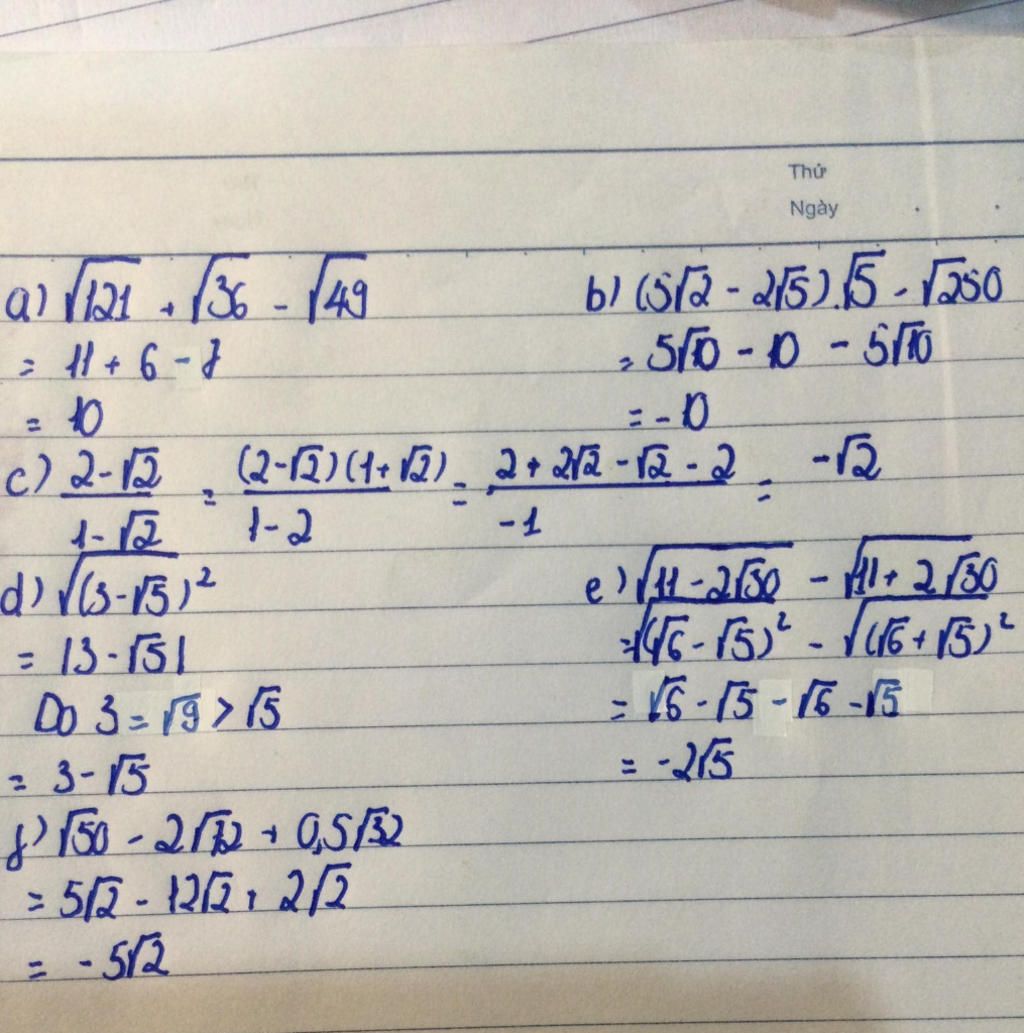 Thứ
Ngày
a) √121 + √36 - √49
= 11 + 6 - 7
= 10
b) (5√2 - 2√5).√5 - √250
= 5√10 - 10 - 5√10
= - 10
c) (2-√2)/(1-√2) = ((2-√2)(1+√2))/(1-2) = (2+2√2-√2-2)/(-1) = -√2
d) √((3-√5)²)
= |3-√5|
Do 3 = √9 > √5
= 3-√5
e) √(11-2√30) - √(11+2√30)
= √((√6-√5)²) - √((√6+√5)²)
= √6 - √5 - √6 - √5
= -2√5
f) √50 - 2√72 + 0,5√32
= 5√2 - 12√2 + 2√2
= -5√2